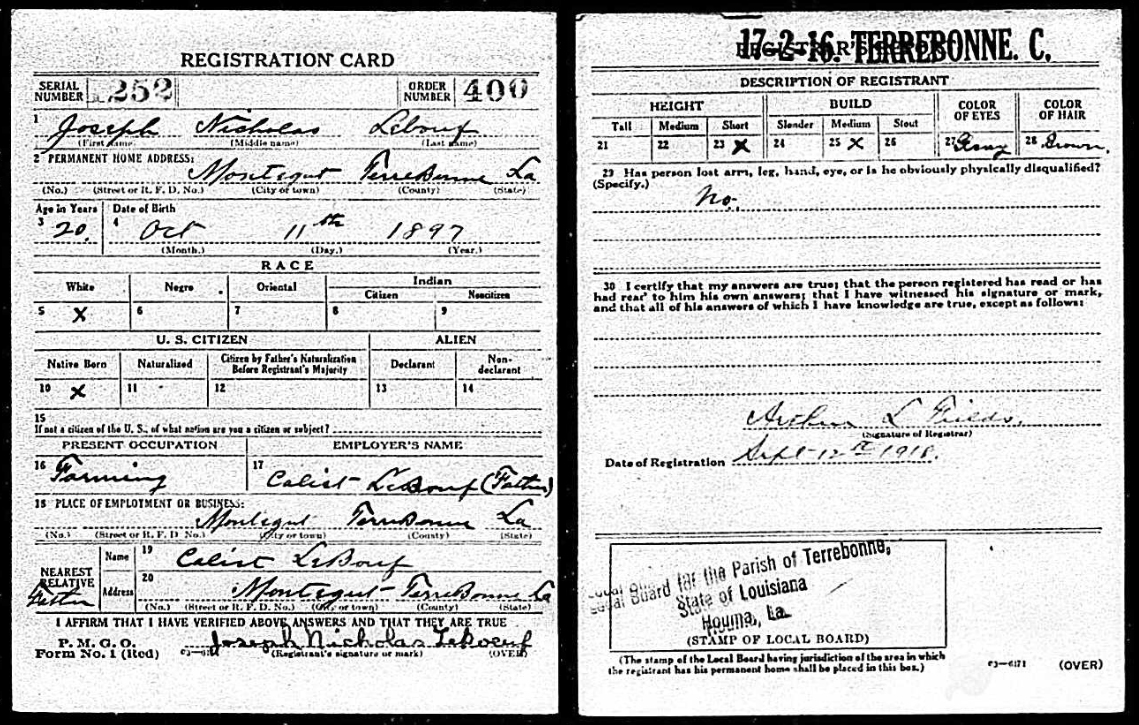 REGISTRATION CARD
SERIAL NUMBER 252 ORDER NUMBER 400
1 Joseph Nicholas Lebouf
(First name) (Middle name) (Last name)
2 PERMANENT HOME ADDRESS:
Montegut TerreBonne La
(No.) (Street or R. F. D. No.) (City or town) (County) (State)
Age in Years Date of Birth
3 20. 4 Oct 11th 1897
(Month.) (Day.) (Year.)
RACE
White Negro Oriental Indian
Citizen Noncitizen
5 X 6 7 8 9
U. S. CITIZEN ALIEN
Native Born Naturalized Citizen by Father's Naturalization Before Registrant's Majority Declarant Non-declarant
10 X 11 12 13 14
15
If not a citizen of the U. S., of what nation are you a citizen or subject?
PRESENT OCCUPATION EMPLOYER'S NAME
16 Farming 17 Calist LeBouf (Father)
18 PLACE OF EMPLOYMENT OR BUSINESS:
Montegut TerreBonne La
(No.) (Street or R. F. D. No.) (City or town) (County) (State)
NEAREST RELATIVE Father
Name 19 Calist LeBouf
Address 20 Montegut TerreBonne La
(No.) (Street or R. F. D. No.) (City or town) (County) (State)
I AFFIRM THAT I HAVE VERIFIED ABOVE ANSWERS AND THAT THEY ARE TRUE
P. M. G. O.
Form No. 1 (Red) Joseph Nicholas Leboeuf
(Registrant's signature or mark) (OVER)
17-2-16. TERREBONNE. C.
REGISTRAR'S
DESCRIPTION OF REGISTRANT
HEIGHT BUILD COLOR OF EYES COLOR OF HAIR
Tall Medium Short Slender Medium Stout
21 22 23 X 24 25 X 26 27 Gray 28 Brown.
29 Has person lost arm, leg, hand, eye, or is he obviously physically disqualified?
(Specify.) No.
30 I certify that my answers are true; that the person registered has read or has
had read to him his own answers; that I have witnessed his signature or mark,
and that all of his answers of which I have knowledge are true, except as follows:
Arthur L
(Signature of Registrar)
Date of Registration Sept 12th 1918.
Local Board for the Parish of Terrebonne,
State of Louisiana
Houma, La.
(STAMP OF LOCAL BOARD)
(The stamp of the Local Board having jurisdiction of the area in which
the registrant has his permanent home shall be placed in this box.)
03-6171 (OVER)